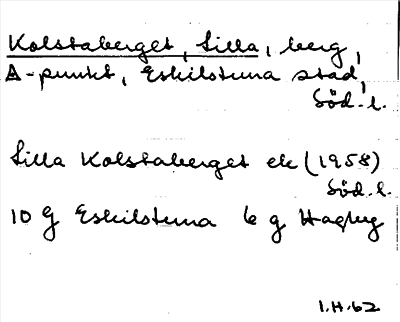 Kolstaberget, Lilla, berg,
Δ-punkt, Eskilstuna stad,
Söd. l.
Lilla Kolstaberget ek (1958)
Söd. l.
10 G Eskilstuna 6 g Hagby
1.H.62